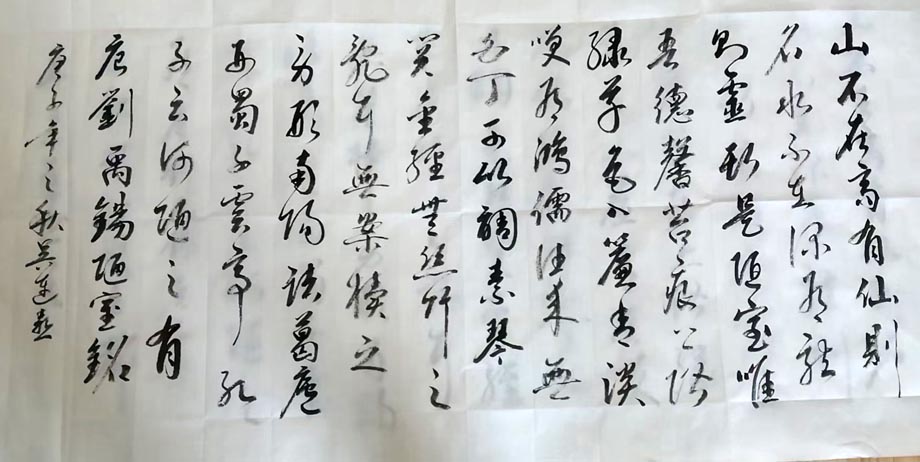 山不在高有仙則
名水不在深有龍
則靈斯是陋室唯
吾德馨苔痕上階
綠草色入簾青談
笑有鴻儒往來無
白丁可以調素琴
閱金經無絲竹之
亂耳無案牘之
勞形南陽諸葛廬
西蜀子雲亭孔
子云何陋之有
唐劉禹錫陋室銘
庚子年之秋吴